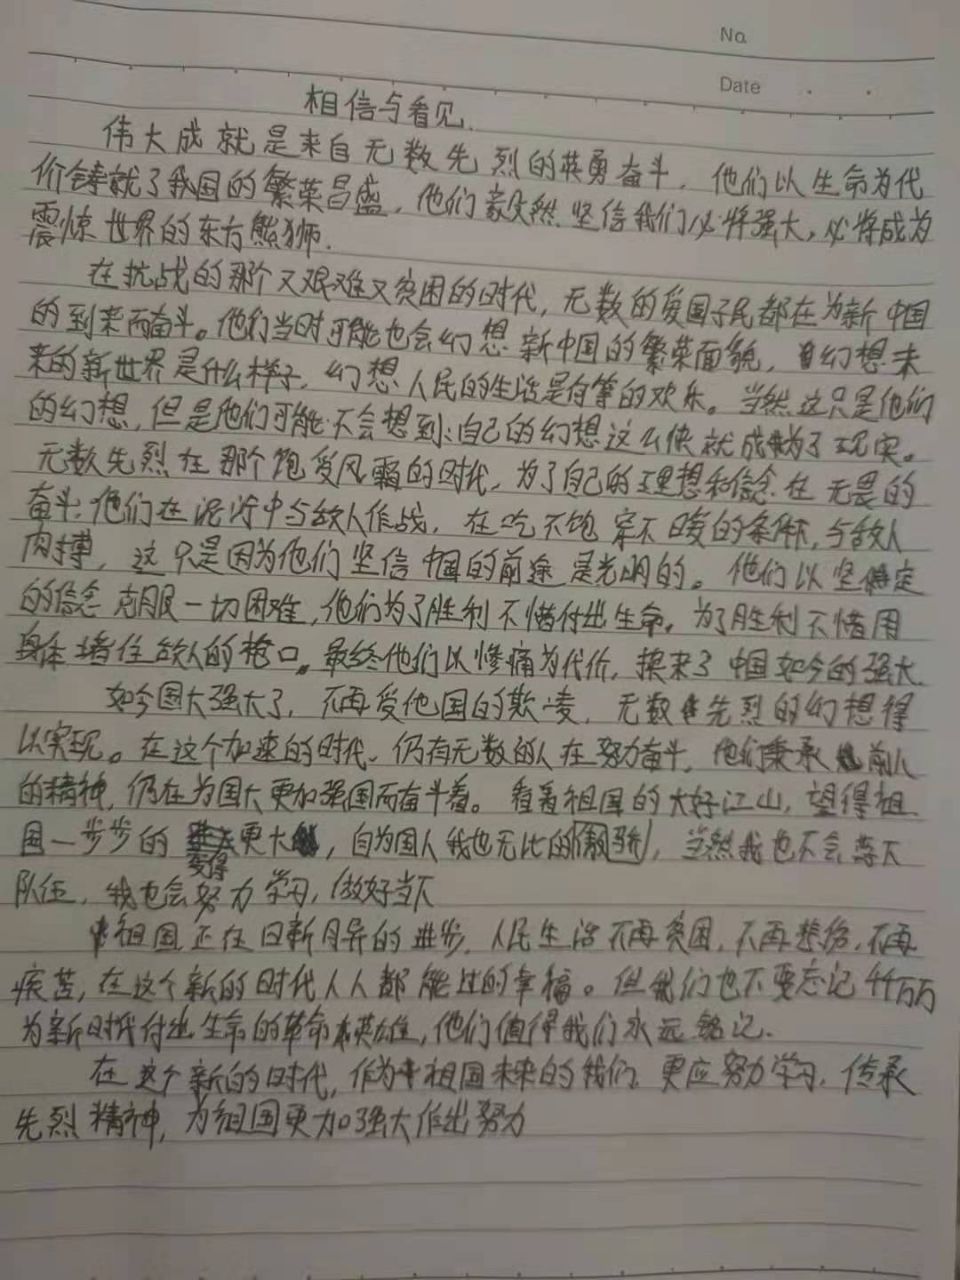 No.
Date
相信与看见.
伟大成就是来自无数先烈的英勇奋斗，他们以生命为代
价铸就了我国的繁荣昌盛，他们毅然坚信我们必将强大，必将成为
震惊世界的东方熊狮.
在抗战的那个又艰难又贫困的时代，无数的爱国子民都在为新中国
的到来而奋斗。他们当时可能也会幻想新中国的繁荣面貌，幻想未
来的新世界是什么样子，幻想人民的生活是何等的欢乐。当然这只是他们
的幻想，但是他们可能不会想到：自己的幻想这么快就成为了现实。
无数先烈在那个饱受风霜的时代，为了自己的理想和信念在无畏的
奋斗：他们在泥泞中与敌人作战，在吃不饱穿不暖的条件，与敌人
肉搏，这只是因为他们坚信中国的前途是光明的。他们以坚定
的信念克服一切困难，他们为了胜利不惜付出生命，为了胜利不惜用
身体堵住敌人的枪口。最终他们以惨痛为代价，换来了中国如今的强大
如今国大强大了，不再受他国的欺凌，无数先烈的幻想得
以实现。在这个加速的时代、仍有无数的人在努力奋斗，他们秉承前人
的精神，仍在为国大更加强国而奋斗着。看着祖国的大好江山，望得祖
国一步步的变得更大，自为国人我也无比的，当然我也不会落下
队伍，我也会努力学习，做好当下
祖国正在日新月异的进步，人民生活不再贫困，不再悲伤，不再
疾苦，在这个新的时代人人都能过的幸福。但我们也不要忘记千万万
为新时代付出生命的革命英雄，他们值得我们永远铭记.
在这个新的时代，作为祖国未来的我们，更应努力学习，传承
先烈精神，为祖国更加强大作出努力